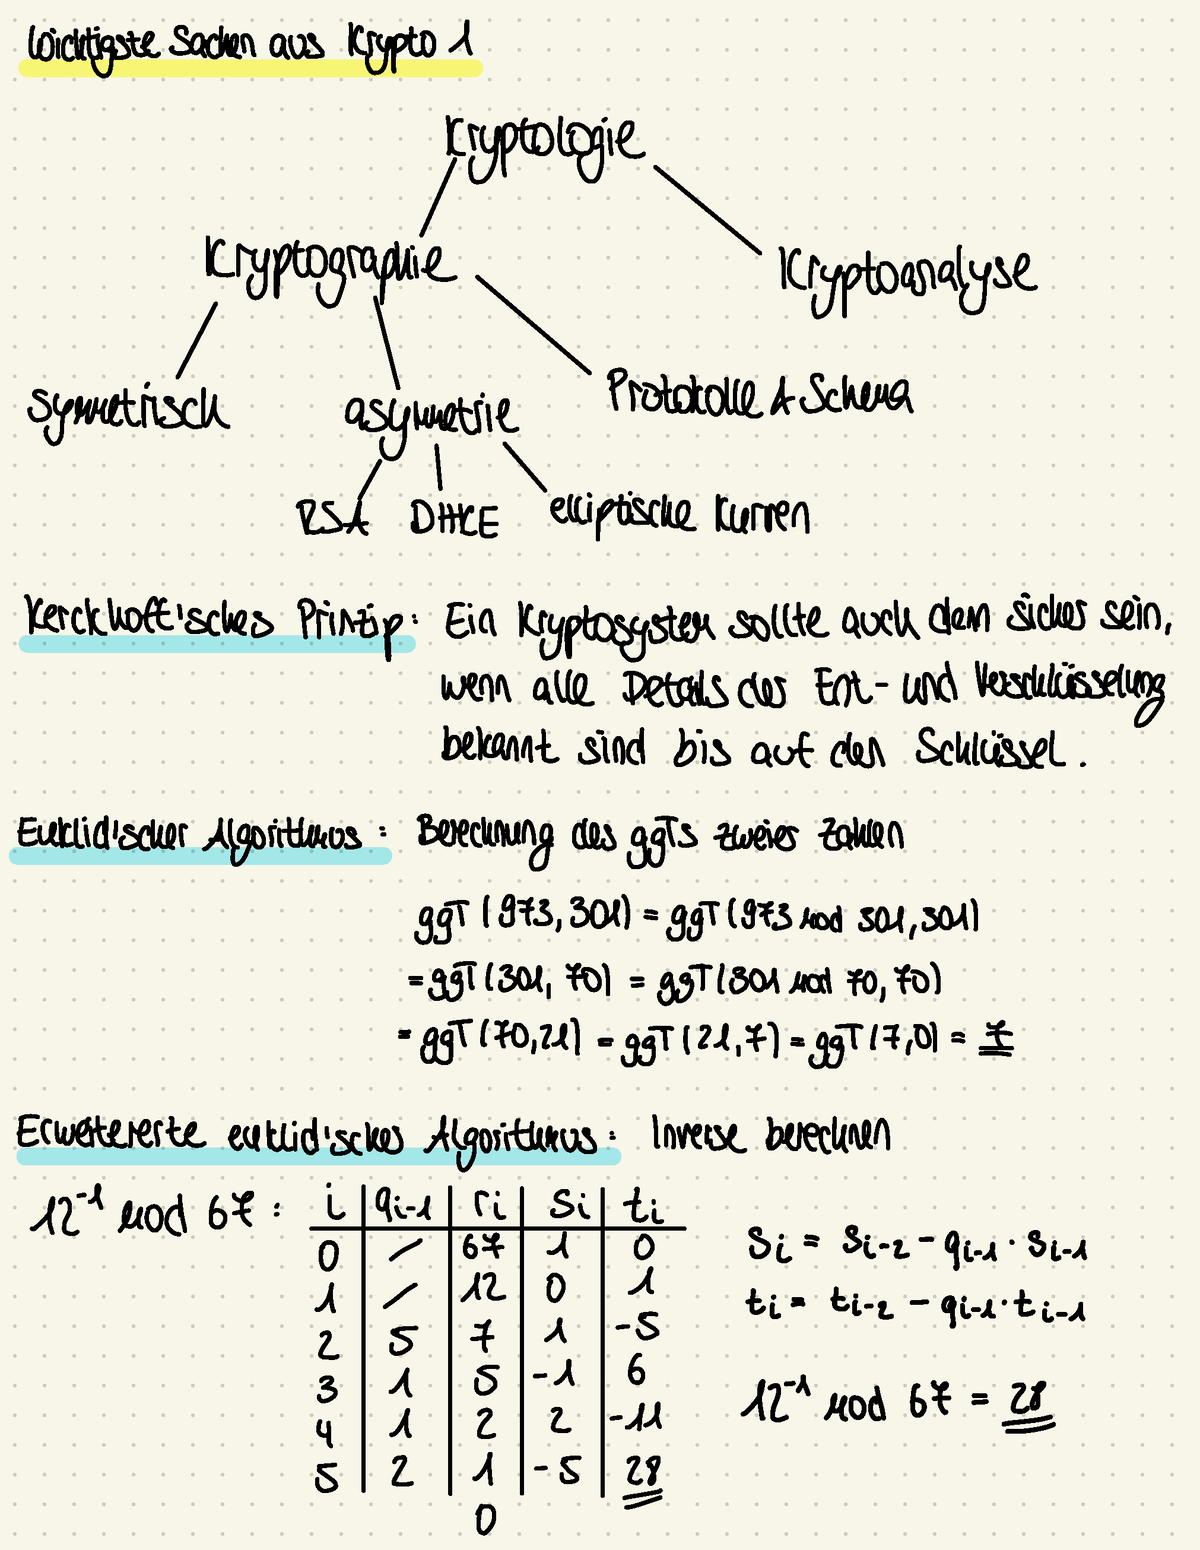 Wichtigste Sachen aus Krypto 1
Kryptologie
Kryptographie Kryptoanalyse
symmetrisch asymmetrie Protokolle & Schema
RSA DHKE elliptische Kurven
Kerckhoff'sches Prinzip: Ein Kryptosystem sollte auch dann sicher sein,
wenn alle Details der Ent- und Verschlüsselung
bekannt sind bis auf den Schlüssel.
Euklid'scher Algorithmus: Berechnung des ggTs zweier Zahlen
ggT (973, 301) = ggT (973 mod 301, 301)
= ggT (301, 70) = ggT (301 mod 70, 70)
= ggT (70, 21) = ggT (21, 7) = ggT (7, 0) = 7
Erweitererte euklid'sches Algorithmus: Inverse berechnen
12⁻¹ mod 67: i | qᵢ₋₁ | rᵢ | sᵢ | tᵢ
0 | / | 67 | 1 | 0 sᵢ = sᵢ₋₂ - qᵢ₋₁ · sᵢ₋₁
1 | / | 12 | 0 | 1 tᵢ = tᵢ₋₂ - qᵢ₋₁ · tᵢ₋₁
2 | 5 | 7 | 1 | -5
3 | 1 | 5 | -1 | 6
4 | 1 | 2 | 2 | -11 12⁻¹ mod 67 = 28
5 | 2 | 1 | -5 | 28
0